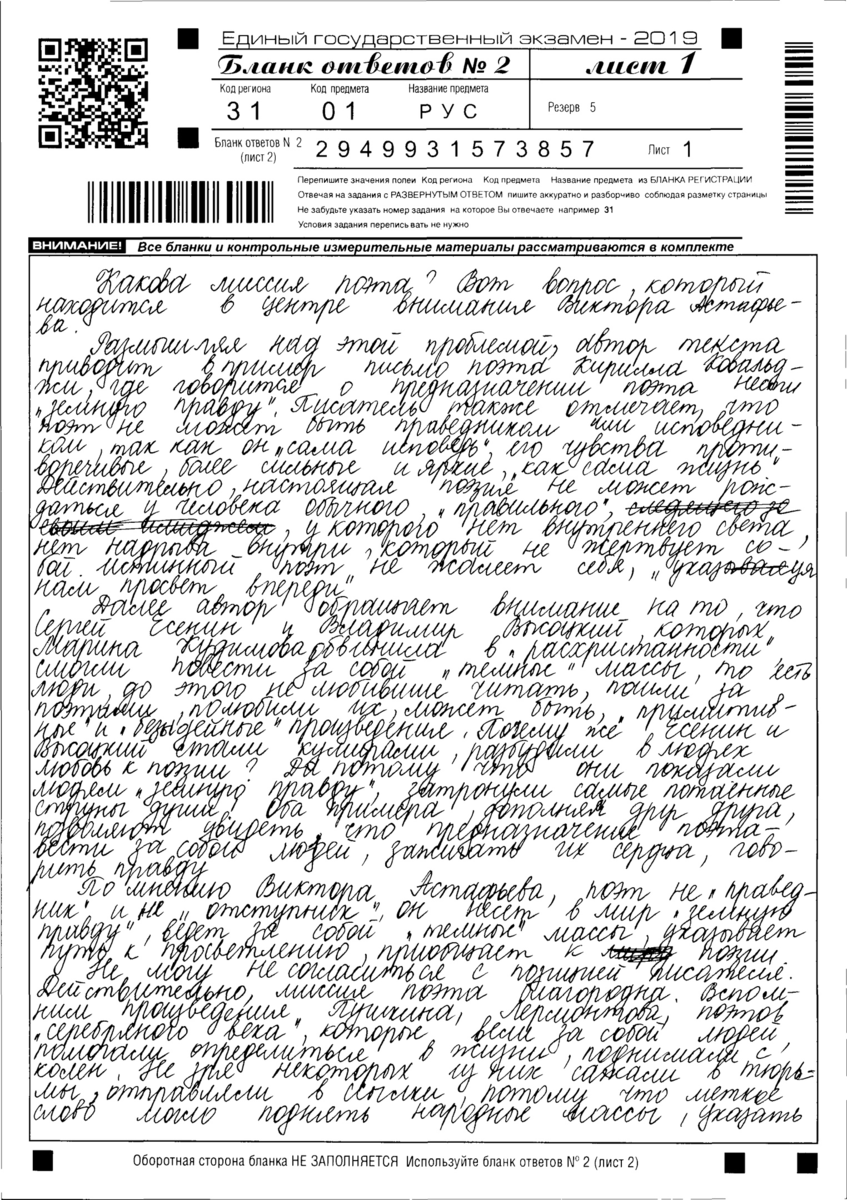 Единый государственный экзамен - 2019
Бланк ответов № 2 лист 1
Код региона Код предмета Название предмета
31 01 РУС Резерв 5
Бланк ответов N 2
(лист 2) 2949931573857 Лист 1
Перепишите значения полеи Код региона Код предмета Название предмета из БЛАНКА РЕГИСТРАЦИИ
Отвечая на задания с РАЗВЕРНУТЫМ ОТВЕТОМ пишите аккуратно и разборчиво соблюдая разметку страницы
Не забудьте указать номер задания на которое Вы отвечаете например 31
Условия задания перепись вать не нужно
ВНИМАНИЕ! Все бланки и контрольные измерительные материалы рассматриваются в комплекте
Какова миссия поэта? Вот вопрос, который
находится в центре внимания Виктора Астафье-
ва.
Размышляя над этой проблемой, автор текста
приводит в пример письмо поэта Кирилла Ковальд-
жи, где говорится о предназначении поэта нести
„земную правду". Писатель также отмечает, что
поэт не может быть праведником или исповедни-
ком, так как он „сама исповедь", его чувства проти-
воречивые, более сильные и яркие, „как сама жизнь".
Действительно, настоящая поэзия не может рож-
даться у человека обычного, „правильного",
у которого нет внутреннего света,
нет надрыва внутри, который не жертвует со-
бой. Истинный поэт не жалеет себя, „указуя
нам просвет впереди"
Далее автор обращает внимание на то, что
Сергей Есенин и Владимир Высоцкий, которых
Марина Кудимова обвинила в „расхристанности"
смогли повести за собой „темные" массы, то есть
люди, до этого не любившие читать, пошли за
поэтами, полюбили их, может быть, „примитив-
ные" и „безыдейные" произведения. Почему же Есенин и
Высоцкий стали кумирами, разбудили в людях
любовь к поэзии? Да потому что они показали
людям „земную правду", затронули самые потаенные
струны души. Оба примера, дополняя друг друга,
позволяют увидеть, что предназначение поэта-
вести за собой людей, зажигать их сердца, гово-
рить правду
По мнению Виктора Астафьева, поэт не „правед-
ник" и не „отступник", он несет в мир „земную
правду", ведет за собой „темные" массы, указывает
путь к просветлению, приобщает к поэзии.
Не могу не согласиться с позицией писателя.
Действительно, миссия поэта благородна. Вспом-
ним произведения Пушкина, Лермонтова, поэтов
„серебряного века", которые вели за собой людей,
помогали определиться в жизни, поднимали с
колен. Не зря некоторых из них сажали в тюрь-
мы, отправляли в ссылки, потому что меткое
слово могло поднять народные массы, указать
Оборотная сторона бланка НЕ ЗАПОЛНЯЕТСЯ Используйте бланк ответов № 2 (лист 2)